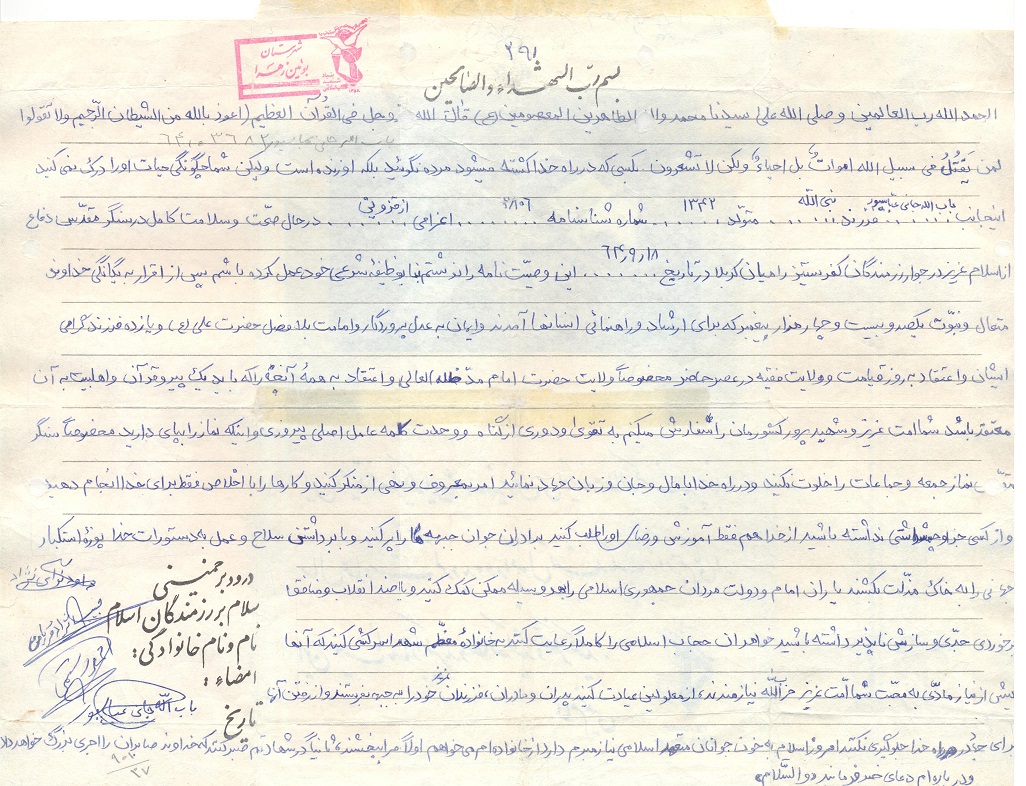 شهرستان
بوئین زهرا
۲۹۱
بسم ربّ الشهداء والصالحین
الحمد الله رب العالمین وصلی الله علی سیدنا محمد والا الطاهرین المعصومین (ص) قال الله وجل فی القرآن العظیم (اعوذ بالله من الشیطان الرّجیم ولا تقولوا
لمن یَقتُلُ فی سبیل الله اموات بل احیاء ولکن لا تشعرون. بکسی که در راه خدا کشته میشود مرده نگوئید بلکه او زنده است ولیکن شما چگونگی حیات او را درک نمی کنید
اینجانب باب الله حاجی عباسپور فرزند نبی الله متولد ۱۳۴۲ شماره شناسنامه ۲۸۰۶ اعزامی از قزوین در حال صحّت وسلامت کامل در سنگر مقدّس دفاع
از اسلام عزیز در جوار رزمندگان کفرستیز را میان کربلا در تاریخ ۶۴٫۹٫۱۸ این وصیّت نامه را نوشتم تا بوظیفه شرعی خود عمل کرده باشم پس از اقرار به یگانگی خداوند
متعال ونبوّت یکصد و بیست و چهار هزار پیغمبر که برای ارشاد و راهنمائی انسانها آمدند وایمان به عدل پروردگار وامامت بلا فصل حضرت علی (ع) و یازده فرزند گرامی
ایشان واعتقاد به روز قیامت و ولایت فقیه در عصر حاضر مخصوصاً ولایت حضرت امام مدّ ظله العالی واعتقاد به همهٔ آنچه را که باید یک پیرو قرآن واهلبیت به آن
معتقد باشد شما امت عزیز و شهید پرور کشورمان را سفارش میکنم به تقوی ودوری از گناه و وحدت کلمه عامل اصلی پیروزی واینکه نماز را بپای دارید مخصوصاً سنگر
نماز جمعه و جماعات را خلوت نکنید ودر راه خدا با مال وجان و زبان جهاد نمائید امر بمعروف و نهی از منکر کنید و کارها را با اخلاص فقط برای خدا انجام دهید
و از کسی جز او چشمداشتی نداشته باشید از خدا هم فقط آموزش ورضای او را طلب کنید برادران جوان جبهه ها را پر کنید و با برداشتن سلاح و عمل به دستورات خدا پوزهٔ استکبار
جهانی را به خاک مذلّت بکشند یاران امام ودولت مردان جمهوری اسلامی را بهر وسیله ممکن کمک کنید و با ضد انقلاب و منافق
برخوردی جدّی و سازش ناپذیر داشته باشید خواهران حجاب اسلامی را کاملا رعایت کنند به خانوادهٔ معظّم شهدا سرکشی کنید که آنها
بیش از نیاز مادّی به محبّت شما امّت عزیز حزب الله نیازمندند از معلولین عیادت کنید پدران و مادران عزیز، فرزندان خود را به جبهه بفرستند و از رفتن آنها
برای جهاد در راه خدا جلوگیری نکنند امروز اسلام به خون جوانان متعهد اسلامی نیاز مبرم دارد از خانواده ام می خواهم اولاً مرا ببخشند ثانیاً در شهادتم صبر کنند که خداوند صابران را اجری بزرگ خواهد داد
ودر باره ام دعای خیر فرمایند والسّلام
درود بر خمینی
سلام بر رزمندگان اسلام
نام و نام خانوادگی:
امضاء:
باب الله حاجی عباسپور
تاریخ